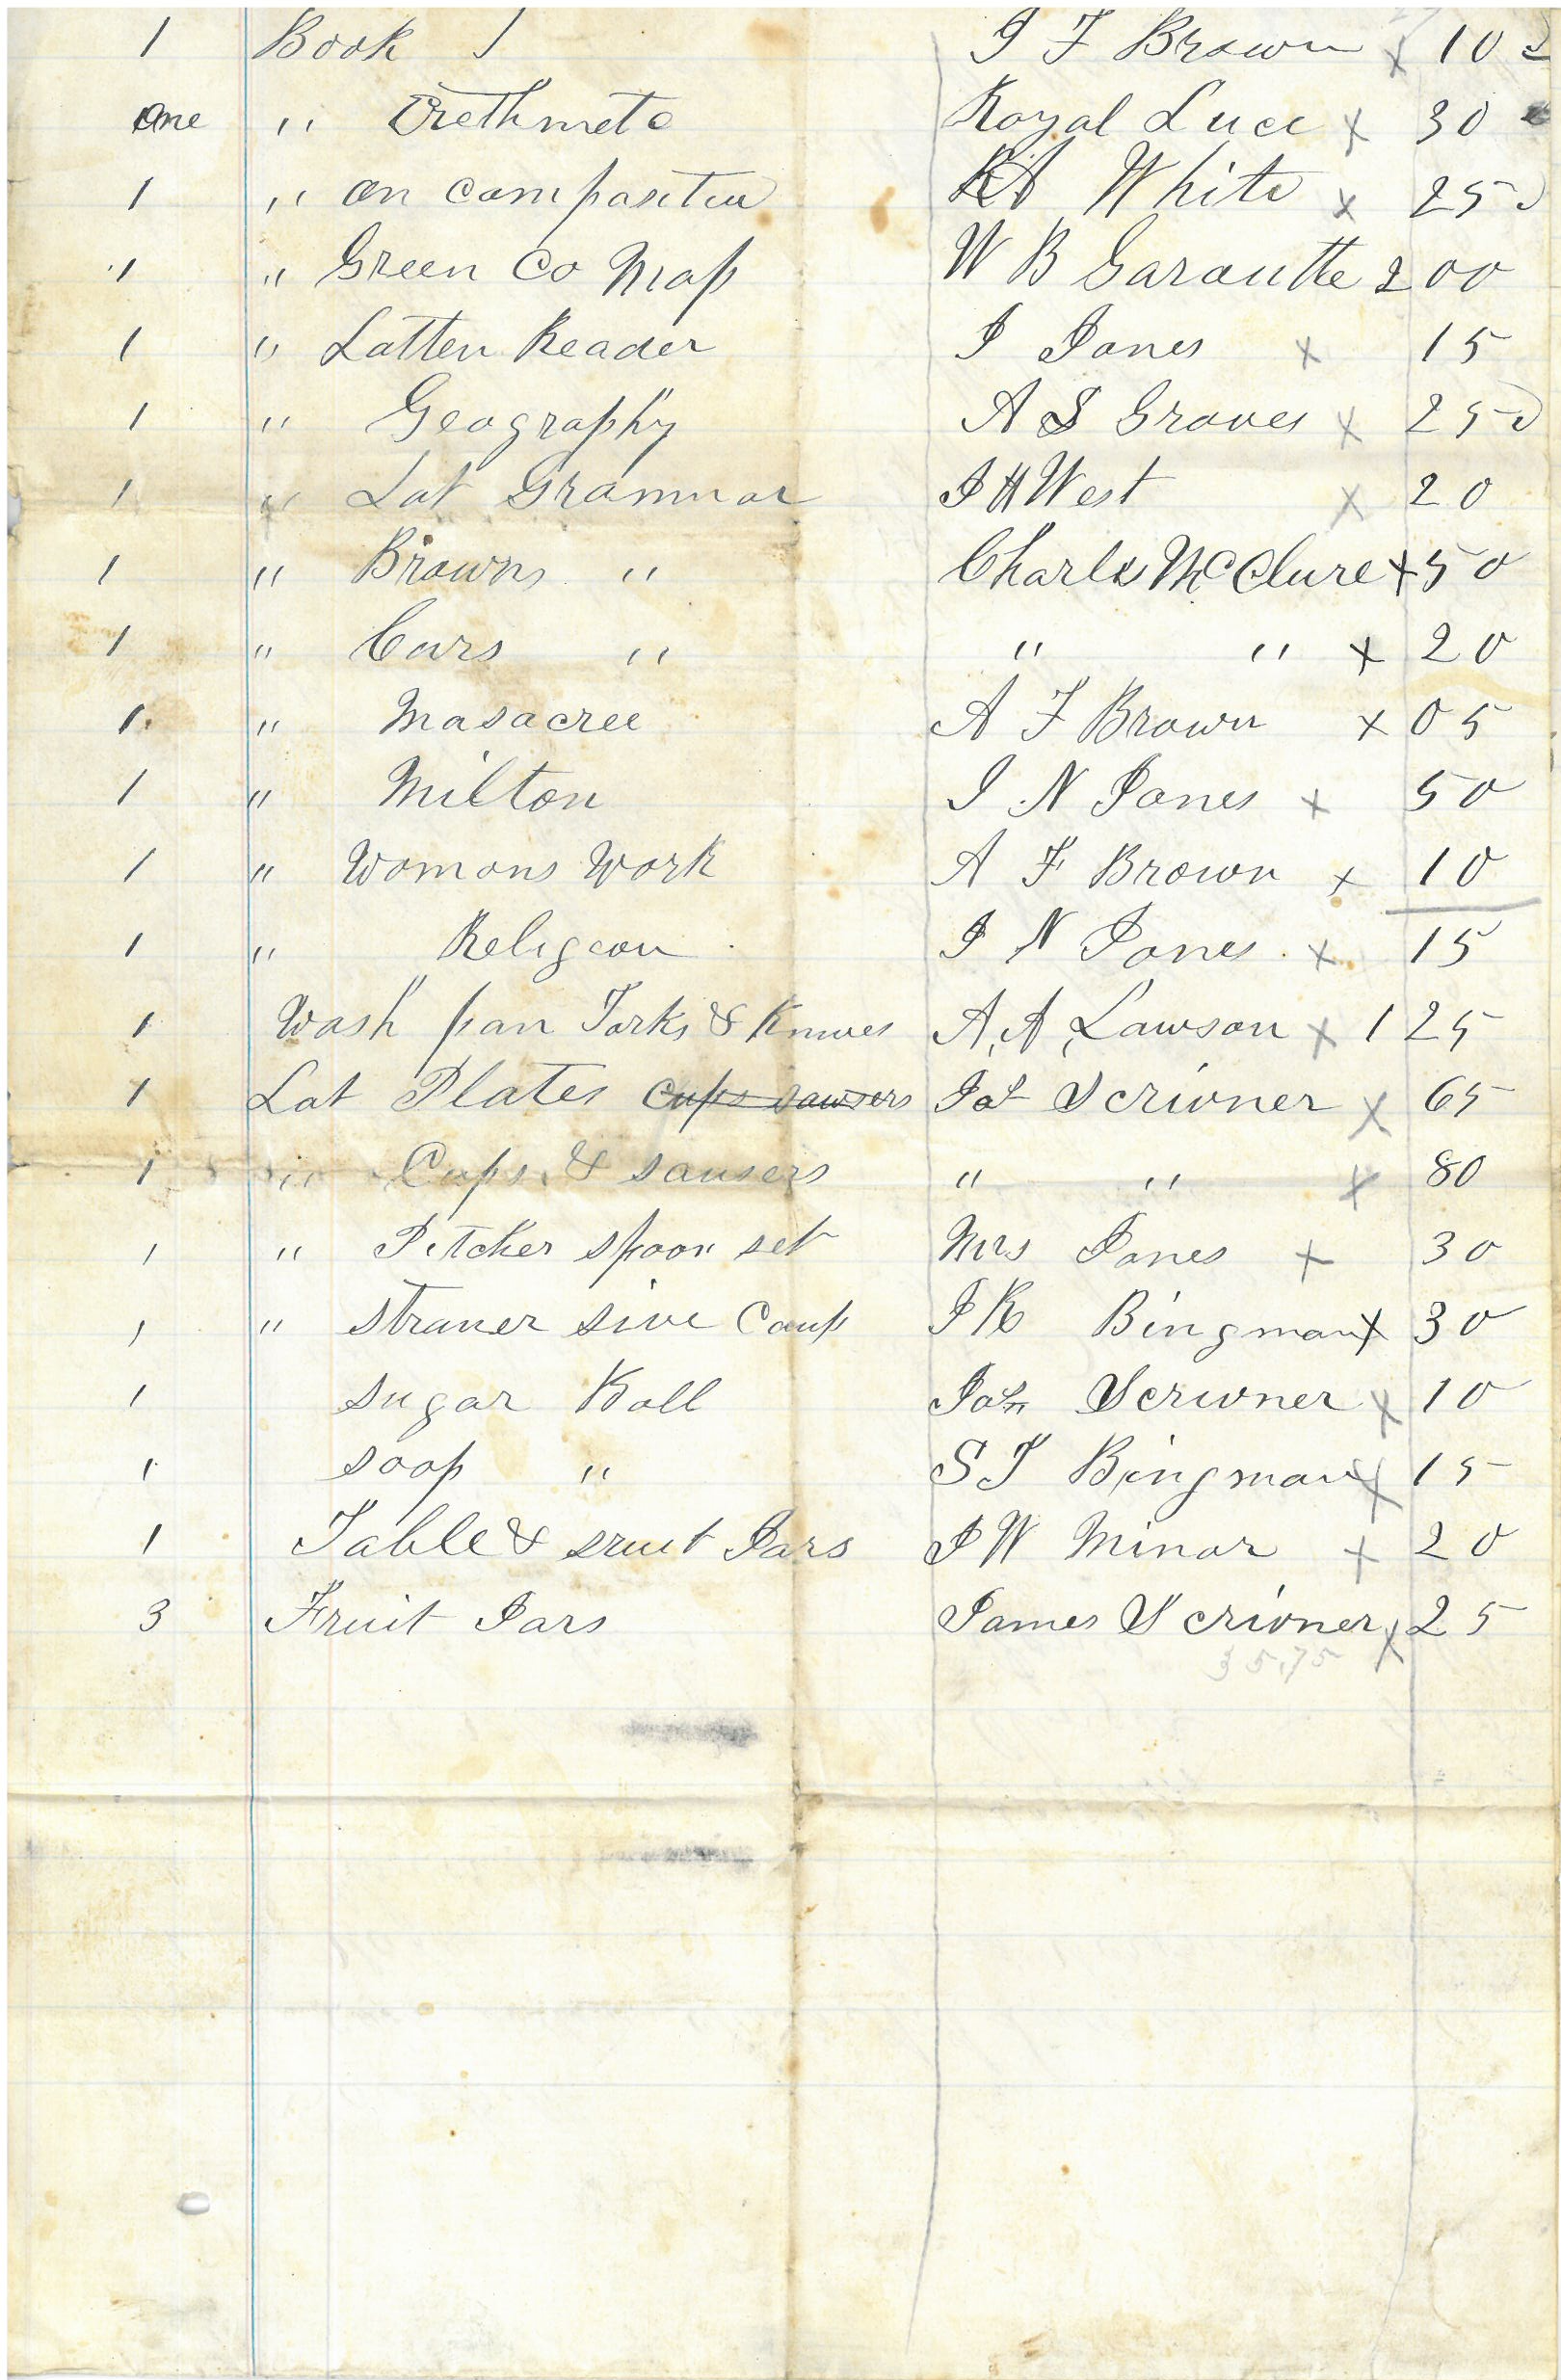 1 Book 1 I F Brown x 10
One " Arethmetc Royal Luce x 30
1 " on compositiu RA White x 25
1 " Green Co Map W B Garoutte 2 00
1 " Latten Reader I Jones x 15
1 " Geography A S Groves x 25
1 " Lat Grammar J H West x 20
1 " Browns " Charls McClure x 50
1 " Cars " " " x 20
1 " Masacree A F Brown x 05
1 " Milton I N Jones x 50
1 " Womans Work A F Brown x 10
1 " Religeon I N Jones x 15
1 Wash pan Forks & Knives A, A, Lawson x 1 25
1 Lot Plates cups sawsers Jas Scrivner x 65
1 " Cups & sausers " " x 80
1 " Pitcher spoon set Mrs Jones x 30
1 " straner sive Coup J K Bingman x 30
1 sugar Boll Jas Scrivner x 10
1 soap " S T Bingman x 15
1 Table & sruit Jars J W Minor x 20
3 Fruit Jars James Scrivner x 25
35.75